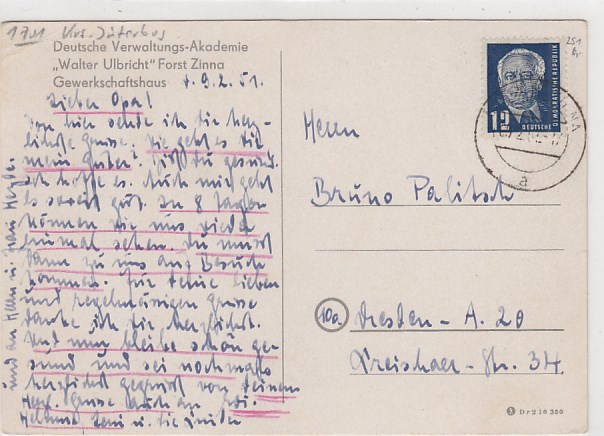 1701 Krs. Jüterbog
Deutsche Verwaltungs-Akademie
„Walter Ulbricht" Forst Zinna
Gewerkschaftshaus
d. 9. 2. 51.
Lieber Opa!
Von hier sende ich dir herz-
lichste Grüsse. Wie geht es dir
mein Guter? Bist du gesund,
ich hoffe es. Auch mir geht
es soweit gut. In 8 Tagen
können wir uns wieder
einmal sehen. Du musst
dann zu uns auf Besuch
kommen. Für deine lieben
und regelmässigen Grüsse
danke ich dir herzlichst.
Und nun bleibe schön ge-
sund und sei nochmals
herzlichst gegrüsst von deinem
Herzl. Grüsse auch an
und an Herrn u. Frau
251
DEUTSCHE
DEMOKRATISCHE REPUBLIK
12
a
Herrn
Bruno Palitsch
10a
Dresden - A. 20
Kreischaer - Str. 34.
5 Dr 210 350